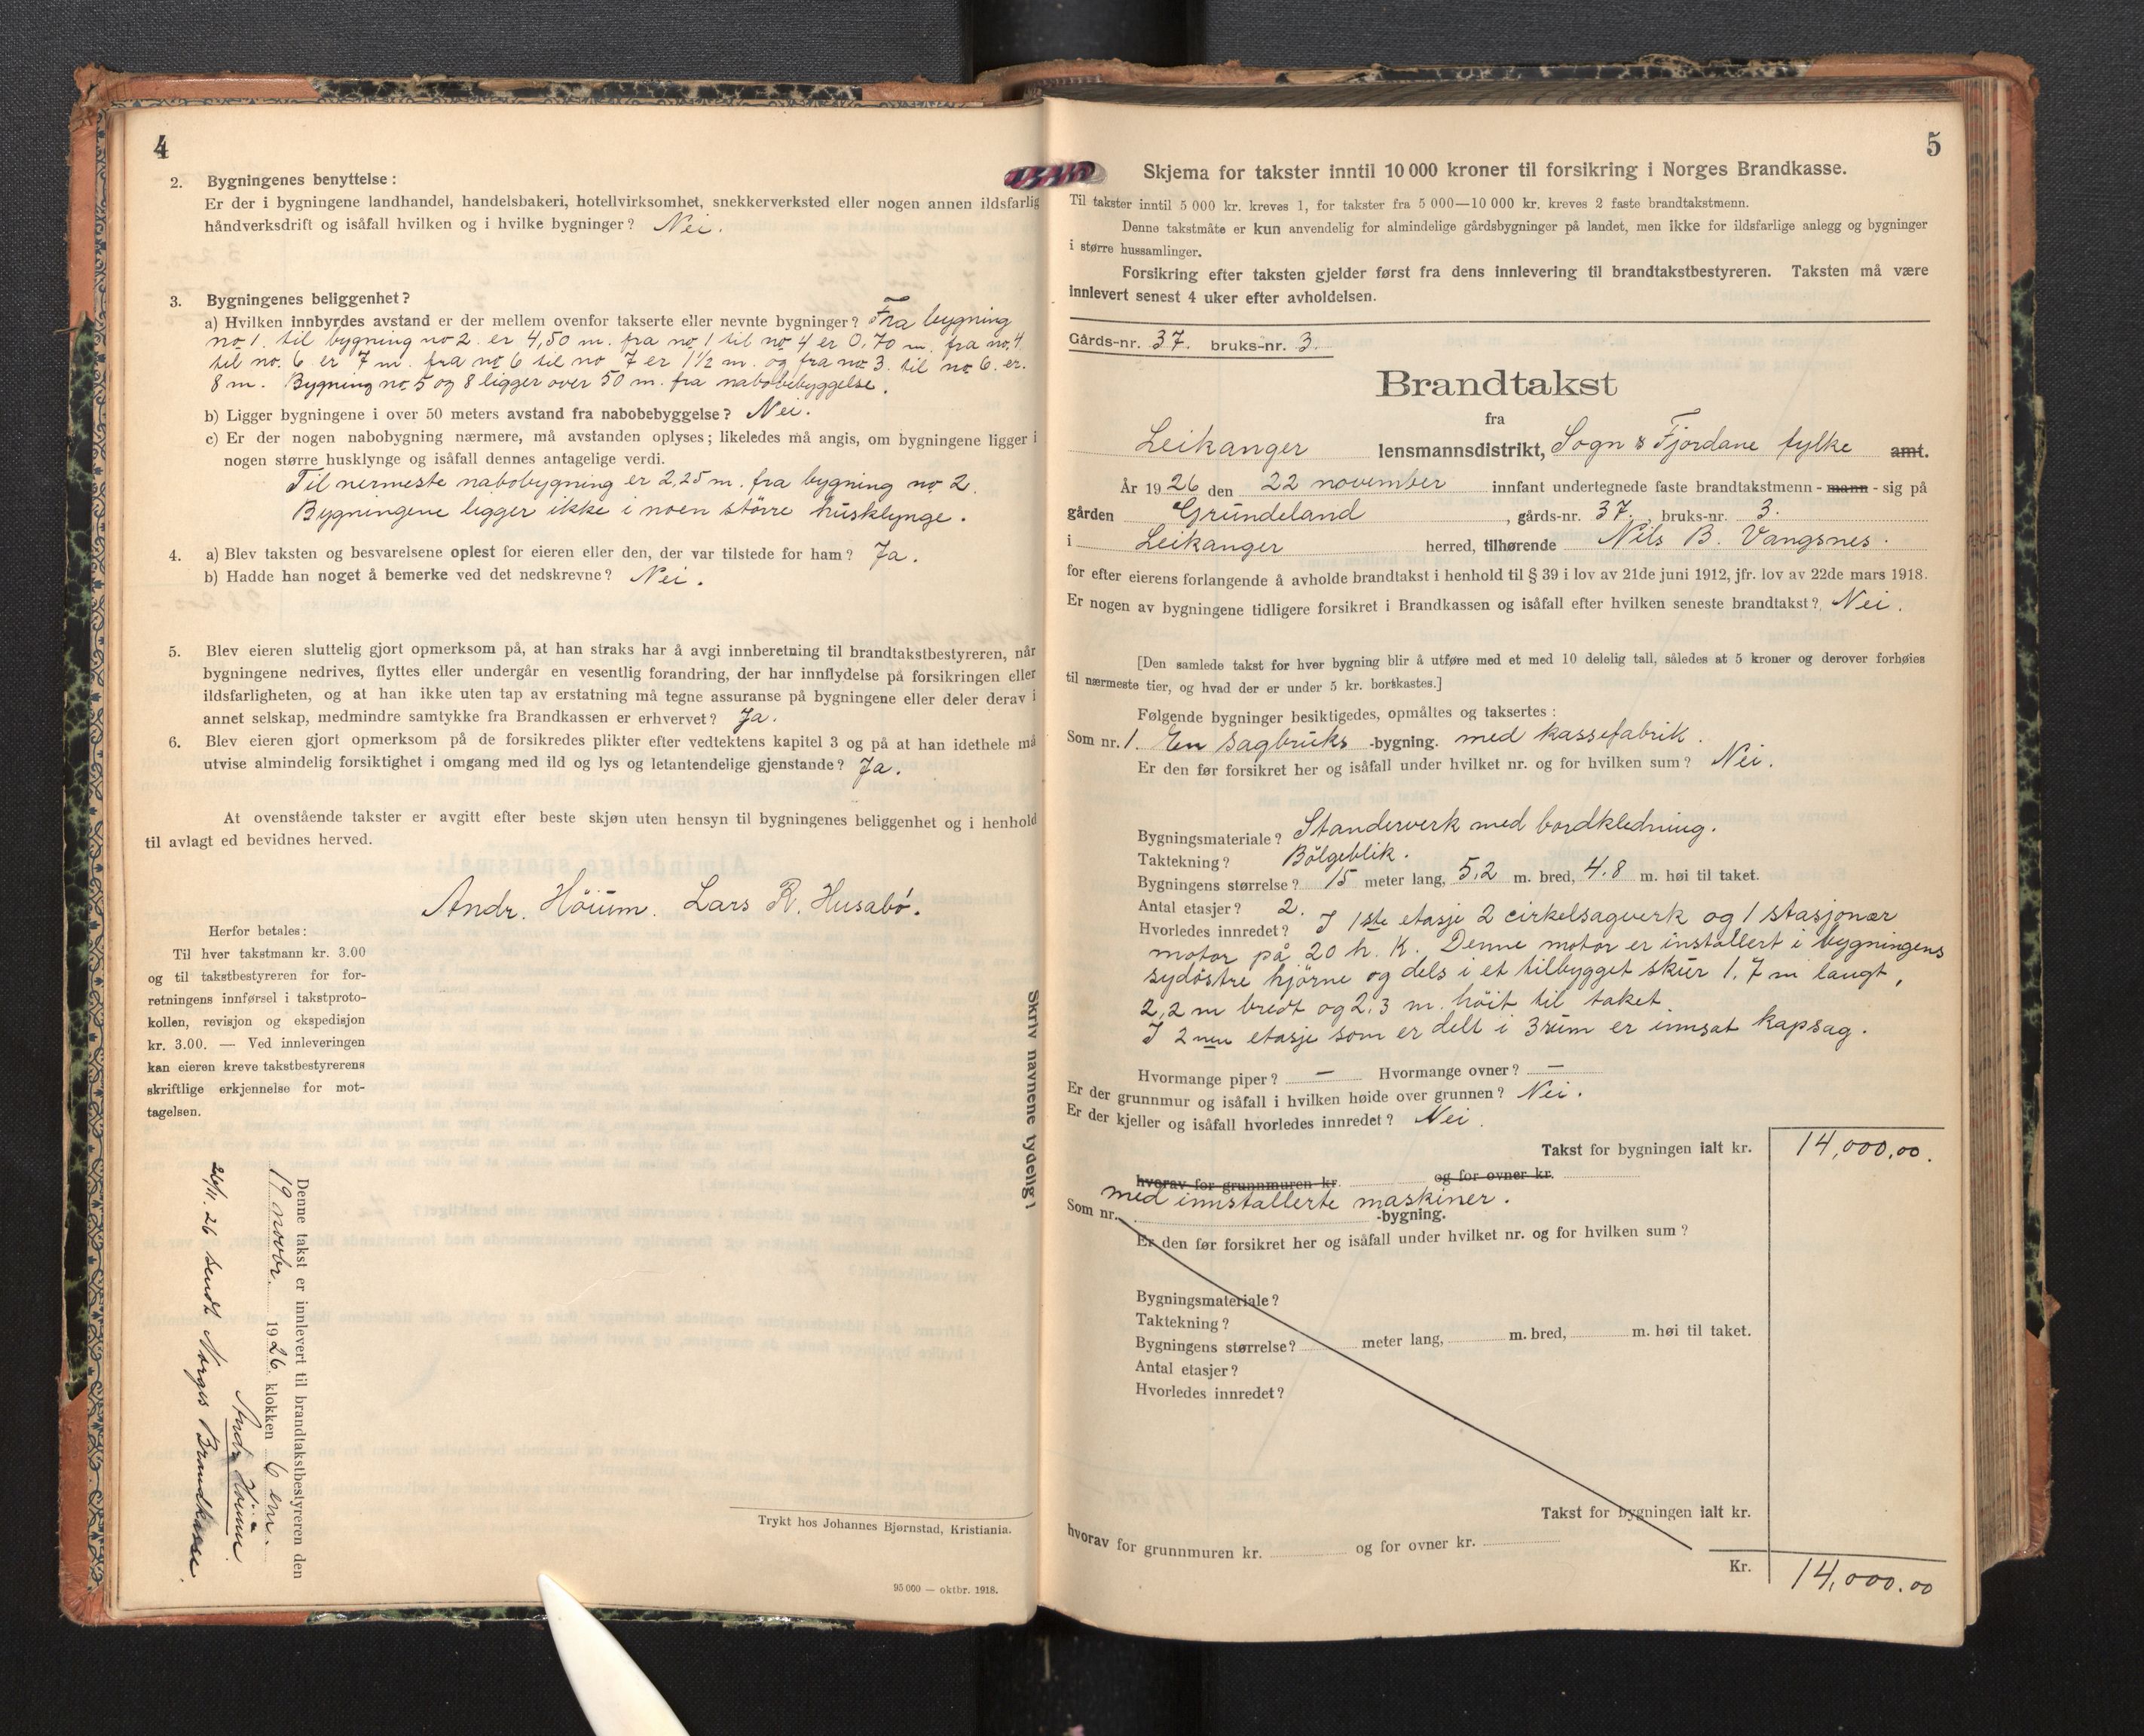 4
2. Bygningenes benyttelse:
Er der i bygningene landhandel, handelsbakeri, hotellvirksomhet, snekkerverksted eller nogen annen ildsfarlig
håndverksdrift og isåfall hvilken og i hvilke bygninger? Nei.
3. Bygningenes beliggenhet?
a) Hvilken innbyrdes avstand er der mellem ovenfor takserte eller nevnte bygninger? Fra bygning
no 1. til bygning no 2. er 4,50 m. fra no 1 til no 4 er 0,70 m. fra no. 4
til no. 6 er 7 m. fra no 6 til no 7 er 1 1/2 m. og fra no 3. til no 6. er.
8 m. Bygning no 5 og 8 ligger over 50 m. fra nabobebyggelse.
b) Ligger bygningene i over 50 meters avstand fra nabobebyggelse? Nei.
c) Er der nogen nabobygning nærmere, må avstanden oplyses; likeledes må angis, om bygningene ligger i
nogen større husklynge og isåfall dennes antagelige verdi.
Til nermeste nabobygning er 2,25 m. fra bygning no 2.
Bygningene ligger ikke i noen större husklynge.
4. a) Blev taksten og besvarelsene oplest for eieren eller den, der var tilstede for ham? Ja.
b) Hadde han noget å bemerke ved det nedskrevne? Nei.
5. Blev eieren sluttelig gjort opmerksom på, at han straks har å avgi innberetning til brandtakstbestyreren, når
bygningene nedrives, flyttes eller undergår en vesentlig forandring, der har innflydelse på forsikringen eller
ildsfarligheten, og at han ikke uten tap av erstatning må tegne assuranse på bygningene eller deler derav i
annet selskap, medmindre samtykke fra Brandkassen er erhvervet? Ja.
6. Blev eieren gjort opmerksom på de forsikredes plikter efter vedtektens kapitel 3 og på at han idethele må
utvise almindelig forsiktighet i omgang med ild og lys og letantendelige gjenstande? Ja.
At ovenstående takster er avgitt efter beste skjøn uten hensyn til bygningenes beliggenhet og i henhold
til avlagt ed bevidnes herved.
Andr. Höium. Lars R. Husabø.
Herfor betales:
Til hver takstmann kr. 3.00
og til takstbestyreren for for-
retningens innførsel i takstproto-
kollen, revisjon og ekspedisjon
kr. 3.00. — Ved innleveringen
kan eieren kreve takstbestyrerens
skriftlige erkjennelse for mot-
tagelsen.
Denne takst er innlevert til brandtakstbestyreren den
19 novbr. 1926. klokken 6 em.
Andr. Höium.
26/11. 26 sendt Norges Brandkasse.
Skriv navnene tydelig!
Trykt hos Johannes Bjørnstad, Kristiania.
95 000 — oktbr. 1918.
5
Skjema for takster inntil 10 000 kroner til forsikring i Norges Brandkasse.
Til takster inntil 5 000 kr. kreves 1, for takster fra 5 000—10 000 kr. kreves 2 faste brandtakstmenn.
Denne takstmåte er kun anvendelig for almindelige gårdsbygninger på landet, men ikke for ildsfarlige anlegg og bygninger
i større hussamlinger.
Forsikring efter taksten gjelder først fra dens innlevering til brandtakstbestyreren. Taksten må være
innlevert senest 4 uker efter avholdelsen.
Gårds-nr. 37. bruks-nr. 3.
Brandtakst
fra
Leikanger lensmannsdistrikt, Sogn & Fjordane fylke amt.
År 1926 den 22 november innfant undertegnede faste brandtakstmenn - mann - sig på
gården Grundeland, gårds-nr. 37. bruks-nr. 3.
i Leikanger herred, tilhørende Nils B. Vangsnes.
for efter eierens forlangende å avholde brandtakst i henhold til § 39 i lov av 21de juni 1912, jfr. lov av 22de mars 1918.
Er nogen av bygningene tidligere forsikret i Brandkassen og isåfall efter hvilken seneste brandtakst? Nei.
[Den samlede takst for hver bygning blir å utføre med et med 10 delelig tall, således at 5 kroner og derover forhøies
til nærmeste tier, og hvad der er under 5 kr. bortkastes.]
Følgende bygninger besiktigedes, opmåltes og taksertes:
Som nr. 1. En sagbruks -bygning. med kassefabrik.
Er den før forsikret her og isåfall under hvilket nr. og for hvilken sum? Nei.
Bygningsmateriale? Standerverk med bordkledning.
Taktekning? Bölgeblik.
Bygningens størrelse? 15 meter lang, 5,2 m. bred, 4.8 m. høi til taket.
Antal etasjer? 2.
Hvorledes innredet? I 1ste etasje 2 cirkelsagverk og 1 stasjonær
motor på 20 h. K. Denne motor er installert i bygningens
sydöstre hjörne og dels i et tilbygget skur 1,7 m langt,
2,2 m bredt og 2,3 m. höit til taket.
I 2nen etasje som er delt i 3 rum er innsat kapsag.
Hvormange piper? — Hvormange ovner? —
Er der grunnmur og isåfall i hvilken høide over grunnen? Nei.
Er der kjeller og isåfall hvorledes innredet? Nei.
Takst for bygningen ialt kr. 14,000.00.
hvorav for grunnmuren kr. og for ovner kr.
med innstallerte maskiner.
Som nr. -bygning.
Er den før forsikret her og isåfall under hvilket nr. og for hvilken sum?
Bygningsmateriale?
Taktekning?
Bygningens størrelse? meter lang, m. bred, m. høi til taket.
Antal etasjer?
Hvorledes innredet?
Takst for bygningen ialt kr.
hvorav for grunnmuren kr. og for ovner kr.
Kr. 14,000.00